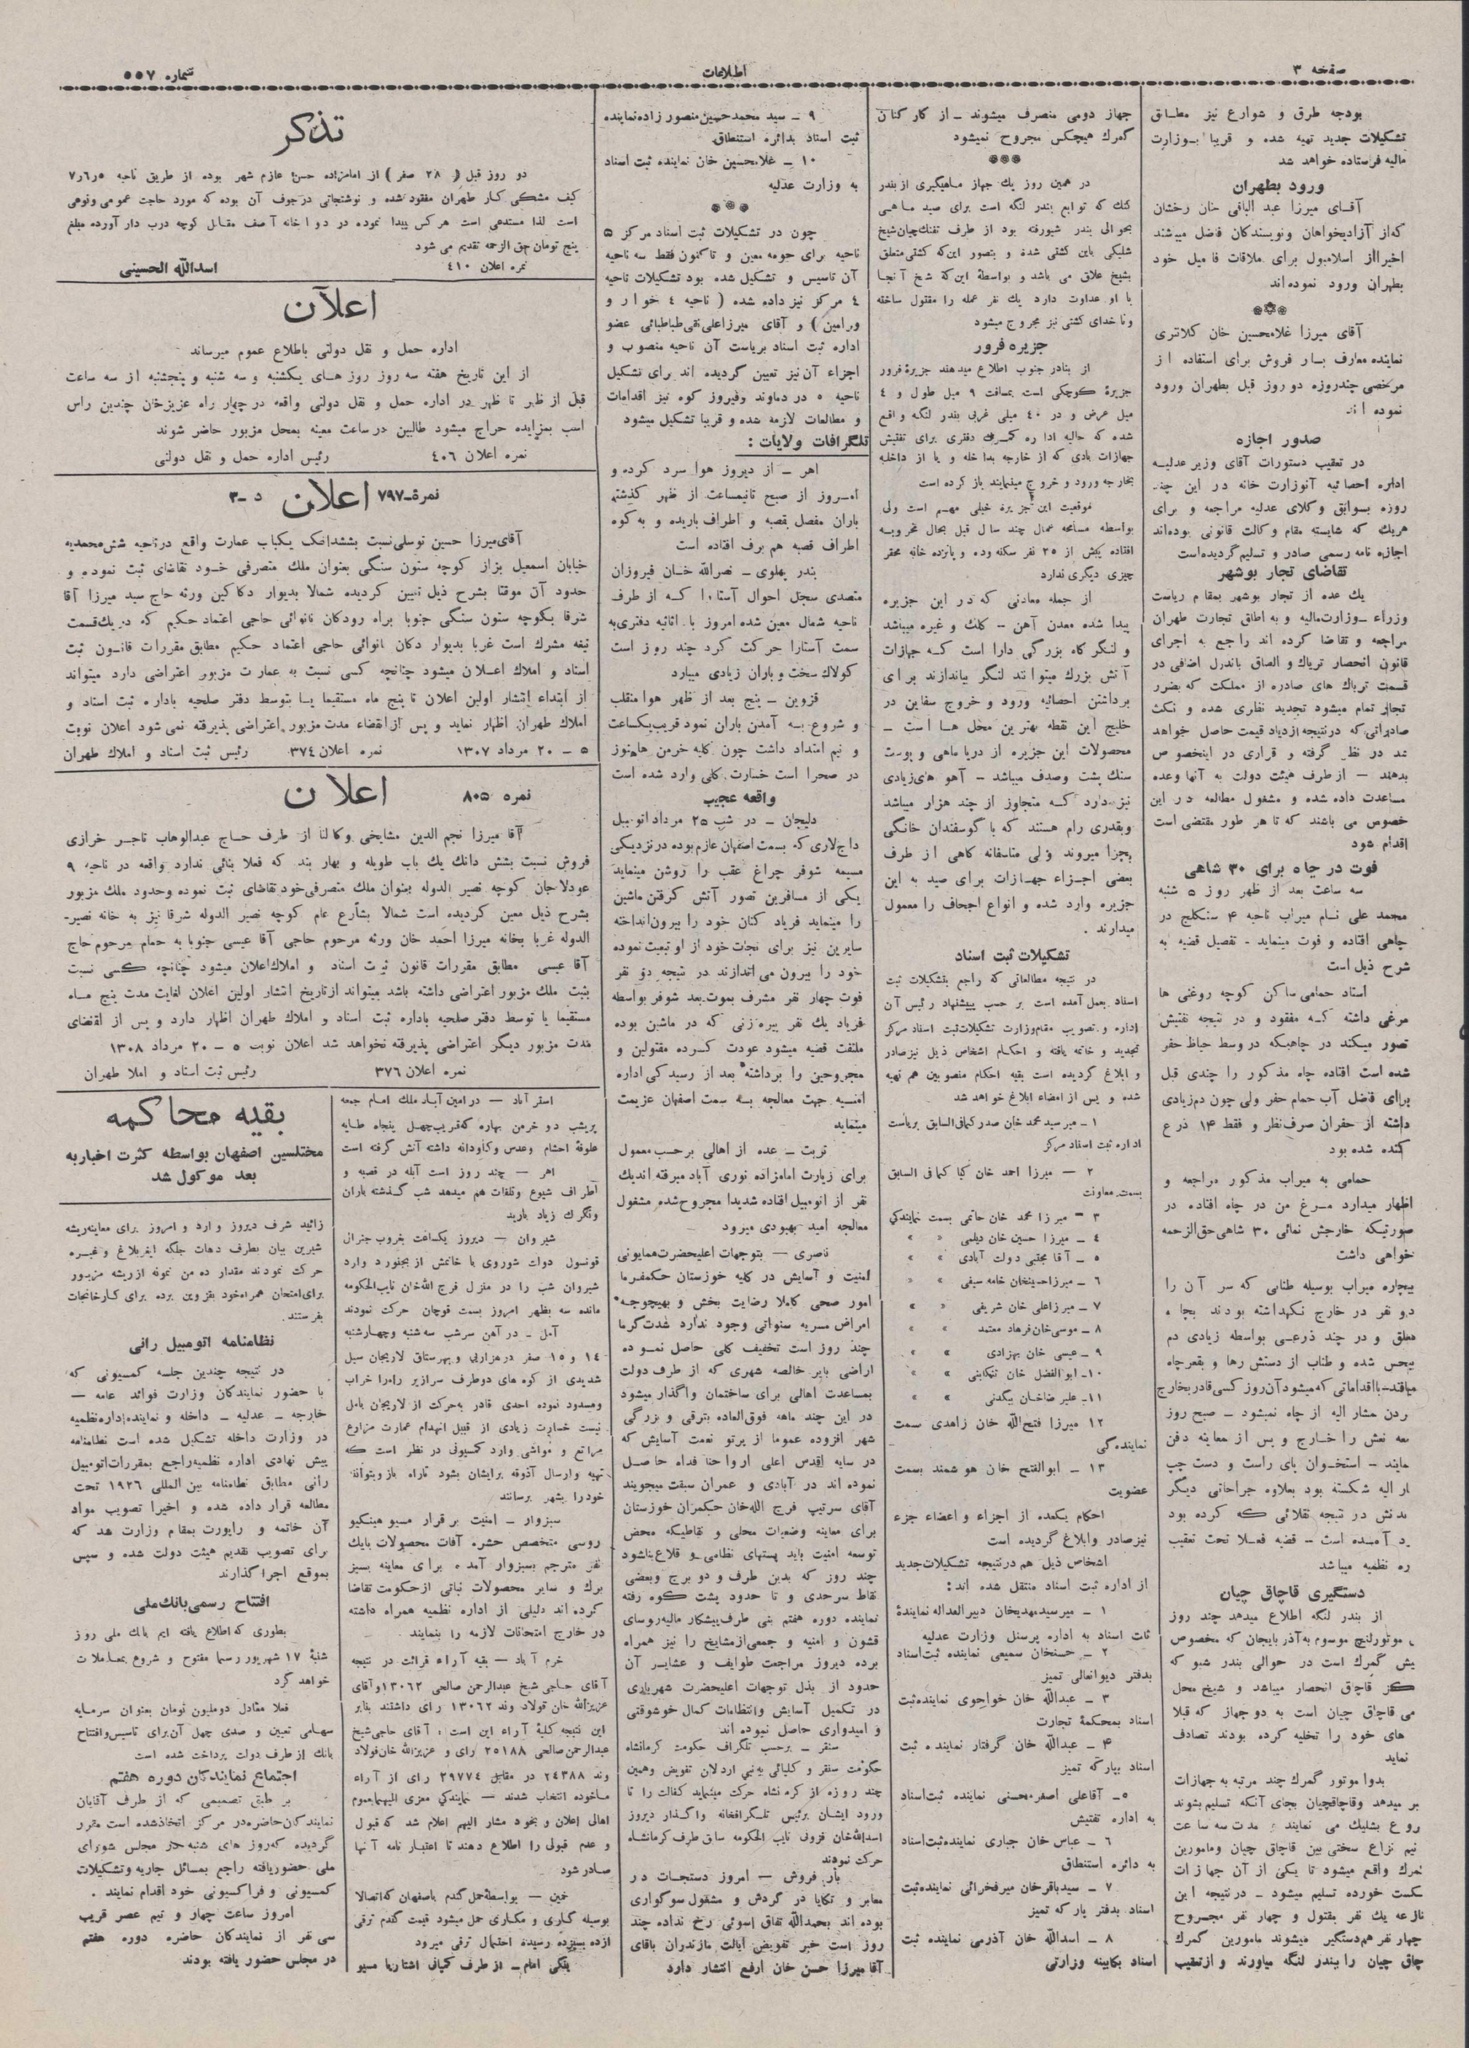 صفحه ۳
اطلاعات
شماره ۵۵۷
بودجه طرق و شوارع نیز مطابق
تشکیلات جدید تهیه شده و قریبا بوزارت
مالیه فرستاده خواهد شد
ورود بطهران
آقای میرزا عبد الباقی خان رخشان
که از آزادیخواهان و نویسندگان فاضل میباشند
اخیرا از اسلامبول برای ملاقات فامیل خود
بطهران ورود نموده اند
آقای میرزا غلامحسین خان کلانتری
نماینده معارف بار فروش برای استفاده از
مرخصی چند روزه دو روز قبل بطهران ورود
نموده اند
صدور اجازه
در تعقیب دستورات آقای وزیر عدلیه
اداره احصائیه آنوزارت خانه در این چند
روزه بسوابق وکلای عدلیه مراجعه و برای
هریک که شایسته مقام وکالت قانونی بوده اند
اجازه نامه رسمی صادر و تسلیم گردیده است
تقاضای تجار بوشهر
یک عده از تجار بوشهر بمقام ریاست
وزراء ـ وزارت مالیه و به اطاق تجارت طهران
مراجعه و تقاضا کرده اند راجع به اجرای
قانون انحصار تریاک و الصاق باندرل اضافی در
قسمت تریاک های صادره از مملکت که بضرر
تجار تمام میشود تجدید نظری شده و نکث
صادراتی که در نتیجه ازدیاد قیمت حاصل خواهد
شد در نظر گرفته و قراری در اینخصوص
بدهند ـ از طرف هیئت دولت به آنها وعده
مساعدت داده شده و مشغول مطالعه در این
خصوص می باشند که تا هر طور مقتضی است
اقدام شود
فوت در چاه برای ۳۰ شاهی
سه ساعت بعد از ظهر روز ۵ شنبه
محمد علی نام میراب ناحیه ۴ سنگلج در
چاهی افتاده و فوت مینماید ـ تفصیل قضیه به
شرح ذیل است
استاد حمامی ساکن کوچه روغنی ها
مرغی داشته که مفقود و در نتیجه تفتیش
تصور میکند در چاهیکه در وسط حیاط حفر
شده است افتاده چاه مذکور را چندی قبل
برای فاضل آب حمام حفر ولی چون دم زیادی
داشته از حفران صرف نظر و فقط ۱۴ ذرع
کنده شده بود
حمامی به میراب مذکور مراجعه و
اظهار میدارد مرغ من در چاه افتاده در
صورتیکه خارجش نمائی ۳۰ شاهی حق الزحمه
خواهی داشت
بیچاره میراب بوسیله طنابی که سر آن را
دو نفر در خارج نگهداشته بودند بچاه
معلق و در چند ذرعی بواسطه زیادی دم
بیحس شده و طناب از دستش رها و بقعر چاه
میافتد ـ با اقداماتی که میشود آنروز کسی قادر بخارج
کردن مشار الیه از چاه نمیشود ـ صبح روز
نعش را خارج و پس از معاینه دفن
نمایند ـ استخوان پای راست و دست چپ
الیه شکسته بود بعلاوه جراحاتی دیگر
بدنش در نتیجه تقلائی که کرده بود
آمده است ـ قضیه فعلا تحت تعقیب
نظمیه میباشد
دستگیری قاچاق چیان
از بندر لنگه اطلاع میدهد چند روز
موتورلنچ موسوم به آذربایجان که مخصوص
گمرک است در حوالی بندر شیو که
قاچاق انحصار میباشد و شیخ محل
قاچاق چیان است به دو جهاز که قبلا
های خود را تخلیه کرده بودند تصادف
نماید
بدوا موتور گمرک چند مرتبه به جهازات
میدهد و قاچاقچیان بجای آنکه تسلیم بشوند
شروع بشلیک می نمایند مدت سه ساعت
نیم نزاع سختی بین قاچاق چیان و مامورین
گمرک واقع میشود تا یکی از آن جهازات
شکست خورده تسلیم میشود ـ در نتیجه این
یک نفر مقتول و چهار نفر مجروح
چهار نفر هم دستگیر میشوند مامورین گمرک
قاچاق چیان را ببندر لنگه میاورند و از تعقیب
جهاز دومی منصرف میشوند ـ از کارکنان
گمرک هیچکس مجروح نمیشود
در همین روز یک جهاز ماهیگیری از بندر
کنک که توابع بندر لنگه است برای صید ماهی
بحوالی بندر شیو رفته بود از طرف تفنگ چیان شیخ
شلیکی باین کشتی شده و بتصور این که کشتی متعلق
بشیخ علاق می باشد و بواسطه این که شیخ آنجا
با او عداوت دارد یک نفر عمله را مقتول ساخته
و ناخدای کشتی نیز مجروح میشود
جزیره فرور
از بنادر جنوب اطلاع میدهند جزیره فرور
جزیره کوچکی است بمسافت ۹ میل طول و ۴
میل عرض و در ۴۰ میلی غربی بندر لنگه واقع
شده که حالیه اداره گمرک دفتری برای تفتیش
جهازات بادی که از خارجه بداخله و یا از داخله
بخارجه ورود و خروج مینمایند باز کرده است
موقعیت این جزیره خیلی مهم است ولی
بواسطه مسامحه عمال چند سال قبل بحال مخروبه
افتاده بیش از ۲۵ نفر سکنه و پانزده خانه محقر
چیزی دیگری ندارد
از جمله معادنی که در این جزیره
پیدا شده معدن آهن ـ گلک و غیره میباشد
و لنگرگاه بزرگی دارا است که جهازات
آتش بزرک میتوانند لنگر بیاندازند برای
برداشتن احصائیه ورود و خروج سفاین در
خلیج این نقطه بهترین محل ها است ـ
محصولات این جزیره از دریا ماهی و پوست
سنگ پشت و صدف میباشد ـ آهوهای زیادی
نیز دارد که متجاوز از چند هزار میباشد
و بقدری رام هستند که با گوسفندان خانگی
بچرا میروند ولی متاسفانه گاهی از طرف
بعضی اجزاء جهازات برای صید به این
جزیره وارد شده و انواع اجحاف را معمول
میدارند .
تشکیلات ثبت اسناد
در نتیجه مطالعاتی که راجع بتشکیلات ثبت
اسناد بعمل آمده است بر حسب پیشنهاد رئیس آن
اداره و تصویب مقام وزارت تشکیلات ثبت اسناد مرکز
تجدید و خاتمه یافته و احکام اشخاص ذیل نیز صادر
و ابلاغ گردیده است بقیه احکام منصوبین هم تهیه
شده و پس از امضاء ابلاغ خواهد شد
۱ ـ میر سید محمد خان صدر کمافی السابق بریاست
اداره ثبت اسناد مرکز
۲ ـ میرزا احمد خان کیا کمافی السابق
بسمت معاونت
۳ ـ میرزا محمد خان حاتمی بسمت نمایندگی
۴ ـ میرزا حسین خان دیلمی » »
۵ ـ آقا مجتبی دولت آبادی » »
۶ ـ میرزا حسینخان خامه سیفی » »
۷ ـ میرزا علی خان شریفی » »
۸ ـ موسی خان فرهاد معتمد » »
۹ ـ عیسی خان بهزادی » »
۱۰ـ ابوالفضل خان تنکابنی » »
۱۱ـ علیرضا خان بیگدلی » »
۱۲ میرزا فتح الله خان زاهدی سمت
نمایندگی
۱۳ ـ ابوالفتح خان هوشمند بسمت
عضویت
احکام یکعده از اجزاء و اعضاء جزء
نیز صادر و ابلاغ گردیده است
اشخاص ذیل هم در نتیجه تشکیلات جدید
از اداره ثبت اسناد منتقل شده اند :
۱ ـ میر سید مهدیخان دبیر العداله نماینده
ثبت اسناد به اداره پرسنل وزارت عدلیه
۲ ـ حسنخان سمیعی نماینده ثبت اسناد
بدفتر دیوانعالی تمیز
۳ ـ عبدالله خان خواجوی نماینده ثبت
اسناد بمحکمه تجارت
۴ ـ عبدالله خان گرفتار نماینده ثبت
اسناد بپارکه تمیز
۵ ـ آقا علی اصغر محسنی نماینده ثبت اسناد
به اداره تفتیش
۶ ـ عباس خان جباری نماینده ثبت اسناد
به دائره استنطاق
۷ ـ سید باقر خان میرفخرائی نماینده ثبت
اسناد بدفتر پارکه تمیز
۸ ـ اسدالله خان آذرمی نماینده ثبت
اسناد بکابینه وزارتی
۹ ـ سید محمد حسین منصور زاده نماینده
ثبت اسناد بدائره استنطاق
۱۰ ـ غلامحسین خان نماینده ثبت اسناد
به وزارت عدلیه
چون در تشکیلات ثبت اسناد مرکز ۵
ناحیه برای حومه معین و تا کنون فقط سه ناحیه
آن تاسیس و تشکیل شده بود تشکیلات ناحیه
۴ مرکز نیز داده شده ( ناحیه ۴ خوار و
ورامین ) و آقای میرزا علی نقی طباطبائی عضو
اداره ثبت اسناد بریاست آن ناحیه منصوب و
اجزاء آن نیز تعیین گردیده اند برای تشکیل
ناحیه ۵ در دماوند و فیروز کوه نیز اقدامات
و مطالعات لازمه شده و قریبا تشکیل میشود
تلگرافات ولایات :
اهر ـ از دیروز هوا سرد کرده و
امروز از صبح تا نیمساعت از ظهر گذشته
باران مفصل بقصبه و اطراف باریده و به کوه
اطراف قصبه هم برف افتاده است
بندر پهلوی ـ نصرالله خان فیروزان
متصدی سجل احوال آستارا که از طرف
ناحیه شمال معین شده امروز با اثاثیه دفتری به
سمت آستارا حرکت کرد چند روز است
کولاک سخت و باران زیادی میبارد
قزوین ـ پنج بعد از ظهر هوا منقلب
و شروع به آمدن باران نمود قریب یکساعت
و نیم امتداد داشت چون کلیه خرمن ها هنوز
در صحرا است خسارت کلی وارد شده است
واقعه عجیب
دلیجان ـ در شب ۲۵ مرداد اتومبیل
داج لاری که بسمت اصفهان عازم بوده در نزدیکی
میمه شوفر چراغ عقب را روشن مینماید
یکی از مسافرین تصور آتش گرفتن ماشین
را مینماید فریاد کنان خود را بیرون انداخته
سایرین نیز برای نجات خود از او تبعیت نموده
خود را بیرون می اندازند در نتیجه دو نفر
فوت چهار نفر مشرف بموت بعد شوفر بواسطه
فریاد یک نفر پیره زنی که در ماشین بوده
ملتفت قضیه میشود عودت کرده مقتولین و
مجروحین را برداشته بعد از رسیدگی اداره
امنیه جهت معالجه به سمت اصفهان عزیمت
مینماید
تربت ـ عده از اهالی بر حسب معمول
برای زیارت امامزاده نوری آباد میرفته اند یک
نفر از اتومبیل افتاده شدیدا مجروح شده مشغول
معالجه امید بهبودی میرود
ناصری ـ بتوجهات اعلیحضرت همایونی
امنیت و آسایش در کلیه خوزستان حکمفرما
امور صحی کاملا رضایت بخش و بهیچوجه
امراض مسریه سنواتی وجود ندارد شدت گرما
چند روز است تخفیف کلی حاصل نموده
اراضی بایر خالصه شهری که از طرف دولت
بمساعدت اهالی برای ساختمان واگذار میشود
در این چند ماهه فوق العاده بترقی و بزرگی
شهر افزوده عموما از پرتو نعمت آسایش که
در سایه اقدس اعلی ارواحنا فداه حاصل
نموده اند در آبادی و عمران سبقت میجویند
آقای سرتیپ فرج الله خان حکمران خوزستان
برای معاینه وضعیات محلی و نقاطیکه محض
توسعه امنیت باید پستهای نظامی و قلاع بنا شود
چند روز که بدین طرف و دو برج و بعضی
نقاط سرحدی و تا حدود پشت کوه رفته
نماینده دوره هفتم بنی طرف پیشکار مالیه روسای
قشون و امنیه و جمعی از مشایخ را نیز همراه
برده دیروز مراجعت طوایف و عشایر آن
حدود از بذل توجهات اعلیحضرت شهریاری
در تکمیل آسایش و انتظامات کمال خوشوقتی
و امیدواری حاصل نموده اند
سنقر ـ برحسب تلگراف حکومت کرمانشاه
حکومت سنقر و کلیائی به نبی اردلان تفویض و همین
چند روزه از کرمانشاه حرکت مینماید کفالت را تا
ورود ایشان برئیس تلگرافخانه واگذار دیروز
اسدالله خان قزوینی نایب الحکومه سابق طرف کرمانشاه
حرکت نمودند
بار فروش ـ امروز دستجات در
معابر و تکایا در گردش و مشغول سوگواری
بوده اند بحمدالله اتفاق اسوئی رخ نداده چند
روز است خبر تفویض ایالت مازندران باقای
آقا میرزا حسن خان ارفع انتشار دارد
تذکر
دو روز قبل ( ۲۸ صفر ) از امامزاده حسن عازم شهر بوده از طریق ناحیه ۵ر۶ر۷
کیف مشکی کار طهران مفقود شده و نوشتجاتی در جوف آن بوده که مورد حاجت عمومی و نوعی
است لذا مستدعی است هر کس پیدا نموده در دوا خانه آصف مقابل کوچه درب دار آورده مبلغ
پنج تومان حق الزحمه تقدیم می شود
نمره اعلان ۴۱۰
اسدالله الحسینی
اعلان
اداره حمل و نقل دولتی باطلاع عموم میرساند
از این تاریخ هفته سه روز روز های یکشنبه و سه شنبه و پنجشنبه از سه ساعت
قبل از ظهر تا ظهر در اداره حمل و نقل دولتی واقعه در چهار راه عزیزخان چندین راس
اسب بمزایده حراج میشود طالبین در ساعت معینه بمحل مزبور حاضر شوند
نمره اعلان ۴۰۶
رئیس اداره حمل و نقل دولتی
نمره ـ ۷۹۷
اعلان
د ـ ۳
آقای میرزا حسین توسلی نسبت بششدانک یکباب عمارت واقع در ناحیه شش محمدیه
خیابان اسمعیل بزاز کوچه ستون سنگی بعنوان ملک متصرفی خود تقاضای ثبت نموده و
حدود آن موقتا بشرح ذیل تعیین گردیده شمالا بدیوار دکاکین ورثه حاج سید میرزا آقا
شرقا بکوچه ستون سنگی جنوبا براه رو دکان نانوائی حاجی اعتماد حکیم که در یک قسمت
تیغه مشترک است غربا بدیوار دکان نانوائی حاجی اعتماد حکیم مطابق مقررات قانون ثبت
اسناد و املاک اعلان میشود چنانچه کسی نسبت به عمارت مزبور اعتراضی دارد میتواند
از ابتداء انتشار اولین اعلان تا پنج ماه مستقیما یا بتوسط دفتر صلحیه باداره ثبت اسناد و
املاک طهران اظهار نماید و پس از انقضاء مدت مزبور اعتراضی پذیرفته نمی شود اعلان نوبت
۵ ـ ۲۰ مرداد ۱۳۰۷
نمره اعلان ۳۷۴
رئیس ثبت اسناد و املاک طهران
نمره ۸۰۵
اعلان
آقا میرزا نجم الدین مشایخی وکالتا از طرف حاج عبدالوهاب تاجر خرازی
فروش نسبت بشش دانک یک باب طویله و بهار بند که فعلا بنائی ندارد واقعه در ناحیه ۹
عودلاجان کوچه نصیر الدوله بعنوان ملک متصرفی خود تقاضای ثبت نموده وحدود ملک مزبور
بشرح ذیل معین گردیده است شمالا بشارع عام کوچه نصیر الدوله شرقا نیز به خانه نصیر-
الدوله غربا بخانه میرزا احمد خان ورثه مرحوم حاجی آقا عیسی جنوبا به حمام مرحوم حاج
آقا عیسی مطابق مقررات قانون ثبت اسناد و املاک اعلان میشود چنانچه کسی نسبت
بثبت ملک مزبور اعتراضی داشته باشد میتواند از تاریخ انتشار اولین اعلان لغایت مدت پنج ماه
مستقیما یا توسط دفتر صلحیه باداره ثبت اسناد و املاک طهران اظهار دارد و پس از انقضای
مدت مزبور دیگر اعتراضی پذیرفته نخواهد شد اعلان نوبت ۵ ـ ۲۰ مرداد ۱۳۰۸
نمره اعلان ۳۷۶
رئیس ثبت اسناد و املا طهران
استر آباد ـ در امین آباد ملک امام جمعه
پریشب دو خرمن بهاره که قریب چهل پنجاه طایه
علوفه احشام وعدس وکاودانه داشته آتش گرفته است
اهر ـ چند روز است آبله در قصبه و
اطراف شیوع وتلفات هم میدهد شب گذشته باران
وتگرک زیاد بارید
شیروان ـ دیروز یکساعت بغروب جنرال
قونسول دولت شوروی با خانمش از بجنورد وارد
شیروان شب را در منزل فرج الله خان نایب الحکومه
مانده سه بظهر امروز بسمت قوچان حرکت نمودند
آمل ـ در آهن سر شب سه شنبه وچهارشنبه
۱۴ و ۱۵ صفر در هزارپی و بهرستاق لاریجان سیل
شدیدی از کوه های دو طرف سرازیر راه را خراب
ومسدود نموده احدی قادر بحرکت از لاریجان بامل
نیست خسارت زیادی از قبیل انهدام عمارت مزارع
مراتع و مواشی وارد کمسیونی در نظر است که
تهیه وارسال آذوقه برایشان بشود تا راه باز وبتوانند
خود را بشهر برسانند
سبزوار ـ امنیت برقرار مسیو هینکیو
روسی متخصص حشره آفات محصولات بایک
نفر مترجم بسبزوار آمده برای معاینه بسیز
برک و سایر محصولات نباتی از حکومت تقاضا
کرده اند دلیلی از اداره نظمیه همراه داشته
در خارج امتحانات لازمه را بنمایند
خرم آباد ـ بقیه آراء قرائت در نتیجه
آقای حاجی شیخ عبدالرحمن صالحی ۱۳۰۶۲ وآقای
عزیزالله خان قولاد وند ۱۳۰۶۲ رای داشتند بنابر
این نتیجه کلیه آراء این است ، آقای حاجی شیخ
عبدالرحمن صالحی ۲۵۱۸۸ رای و عزیزالله خان فولاد
وند ۲۴۳۸۸ در مقابل ۲۹۷۷۴ رای از آراء
ماخوذه انتخاب شدند ـ نمایندگی معزی الیهما بعموم
اهالی اعلان و بخود مشار الیهم اعلام شد که قبول
و عدم قبولی را اطلاع دهند تا اعتبار نامه آنها
صادر شود
خمین ـ بواسطه حمل گندم باصفهان که اتصالا
بوسیله گاری و مکاری حمل میشود قیمت گندم ترقی
ازده بسیزده رسیده احتمال ترقی میرود
ینگی امام ـ از طرف کمپانی اشتاریا مسیو
بقیه محاکمه
مختلسین اصفهان بواسطه کثرت اخبار به
بعد موکول شد
زائید شرف دیروز وارد و امروز برای معاینه ریشه
شیرین بیان بطرف دهات جلگه ایقربلاغ و غیره
حرکت نمودند مقدار ده من نمونه از ریشه مزبور
برای امتحان همراه خود بقزوین برده برای کارخانجات
بفرستند.
نظامنامه اتومبیل رانی
در نتیجه چندین جلسه کمسیونی که
با حضور نمایندکان وزارت فوائد عامه ـ
خارجه ـ عدلیه ـ داخله و نماینده اداره نظمیه
در وزارت داخله تشکیل شده است نظامنامه
پیش نهادی اداره نظمیه راجع بمقررات اتومبیل
رانی مطابق نظامنامه بین المللی ۱۹۲۶ تحت
مطالعه قرار داده شده و اخیرا تصویب مواد
آن خاتمه و راپورت بمقام وزارت شد که
برای تصویب تقدیم هیئت دولت شده و سپس
بموقع اجرا گذارند
افتتاح رسمی بانک ملی
بطوری که اطلاع یافته ایم بانک ملی روز
شنبه ۱۷ شهریور رسما مفتوح و شروع بمعاملات
خواهد کرد
فعلا معادل دو ملیون تومان بعنوان سرمایه
سهامی تعیین و صدی چهل آن برای تاسیس وافتتاح
بانک از طرف دولت پرداخت شده است
اجتماع نمایندکان دوره هفتم
بر طبق تصمیمی که از طرف آقایان
نمایندکان حاضره در مرکز اتخاذ شده است مقرر
گردیده که روز های شنبه در مجلس شورای
ملی حضور یافته راجع بمسائل جاریه وتشکیلات
کمسیونی و فراکسیونی خود اقدام نمایند .
امروز ساعت چهار و نیم عصر قریب
سی نفر از نمایندکان حاضره دوره هفتم
در مجلس حضور یافته بودند